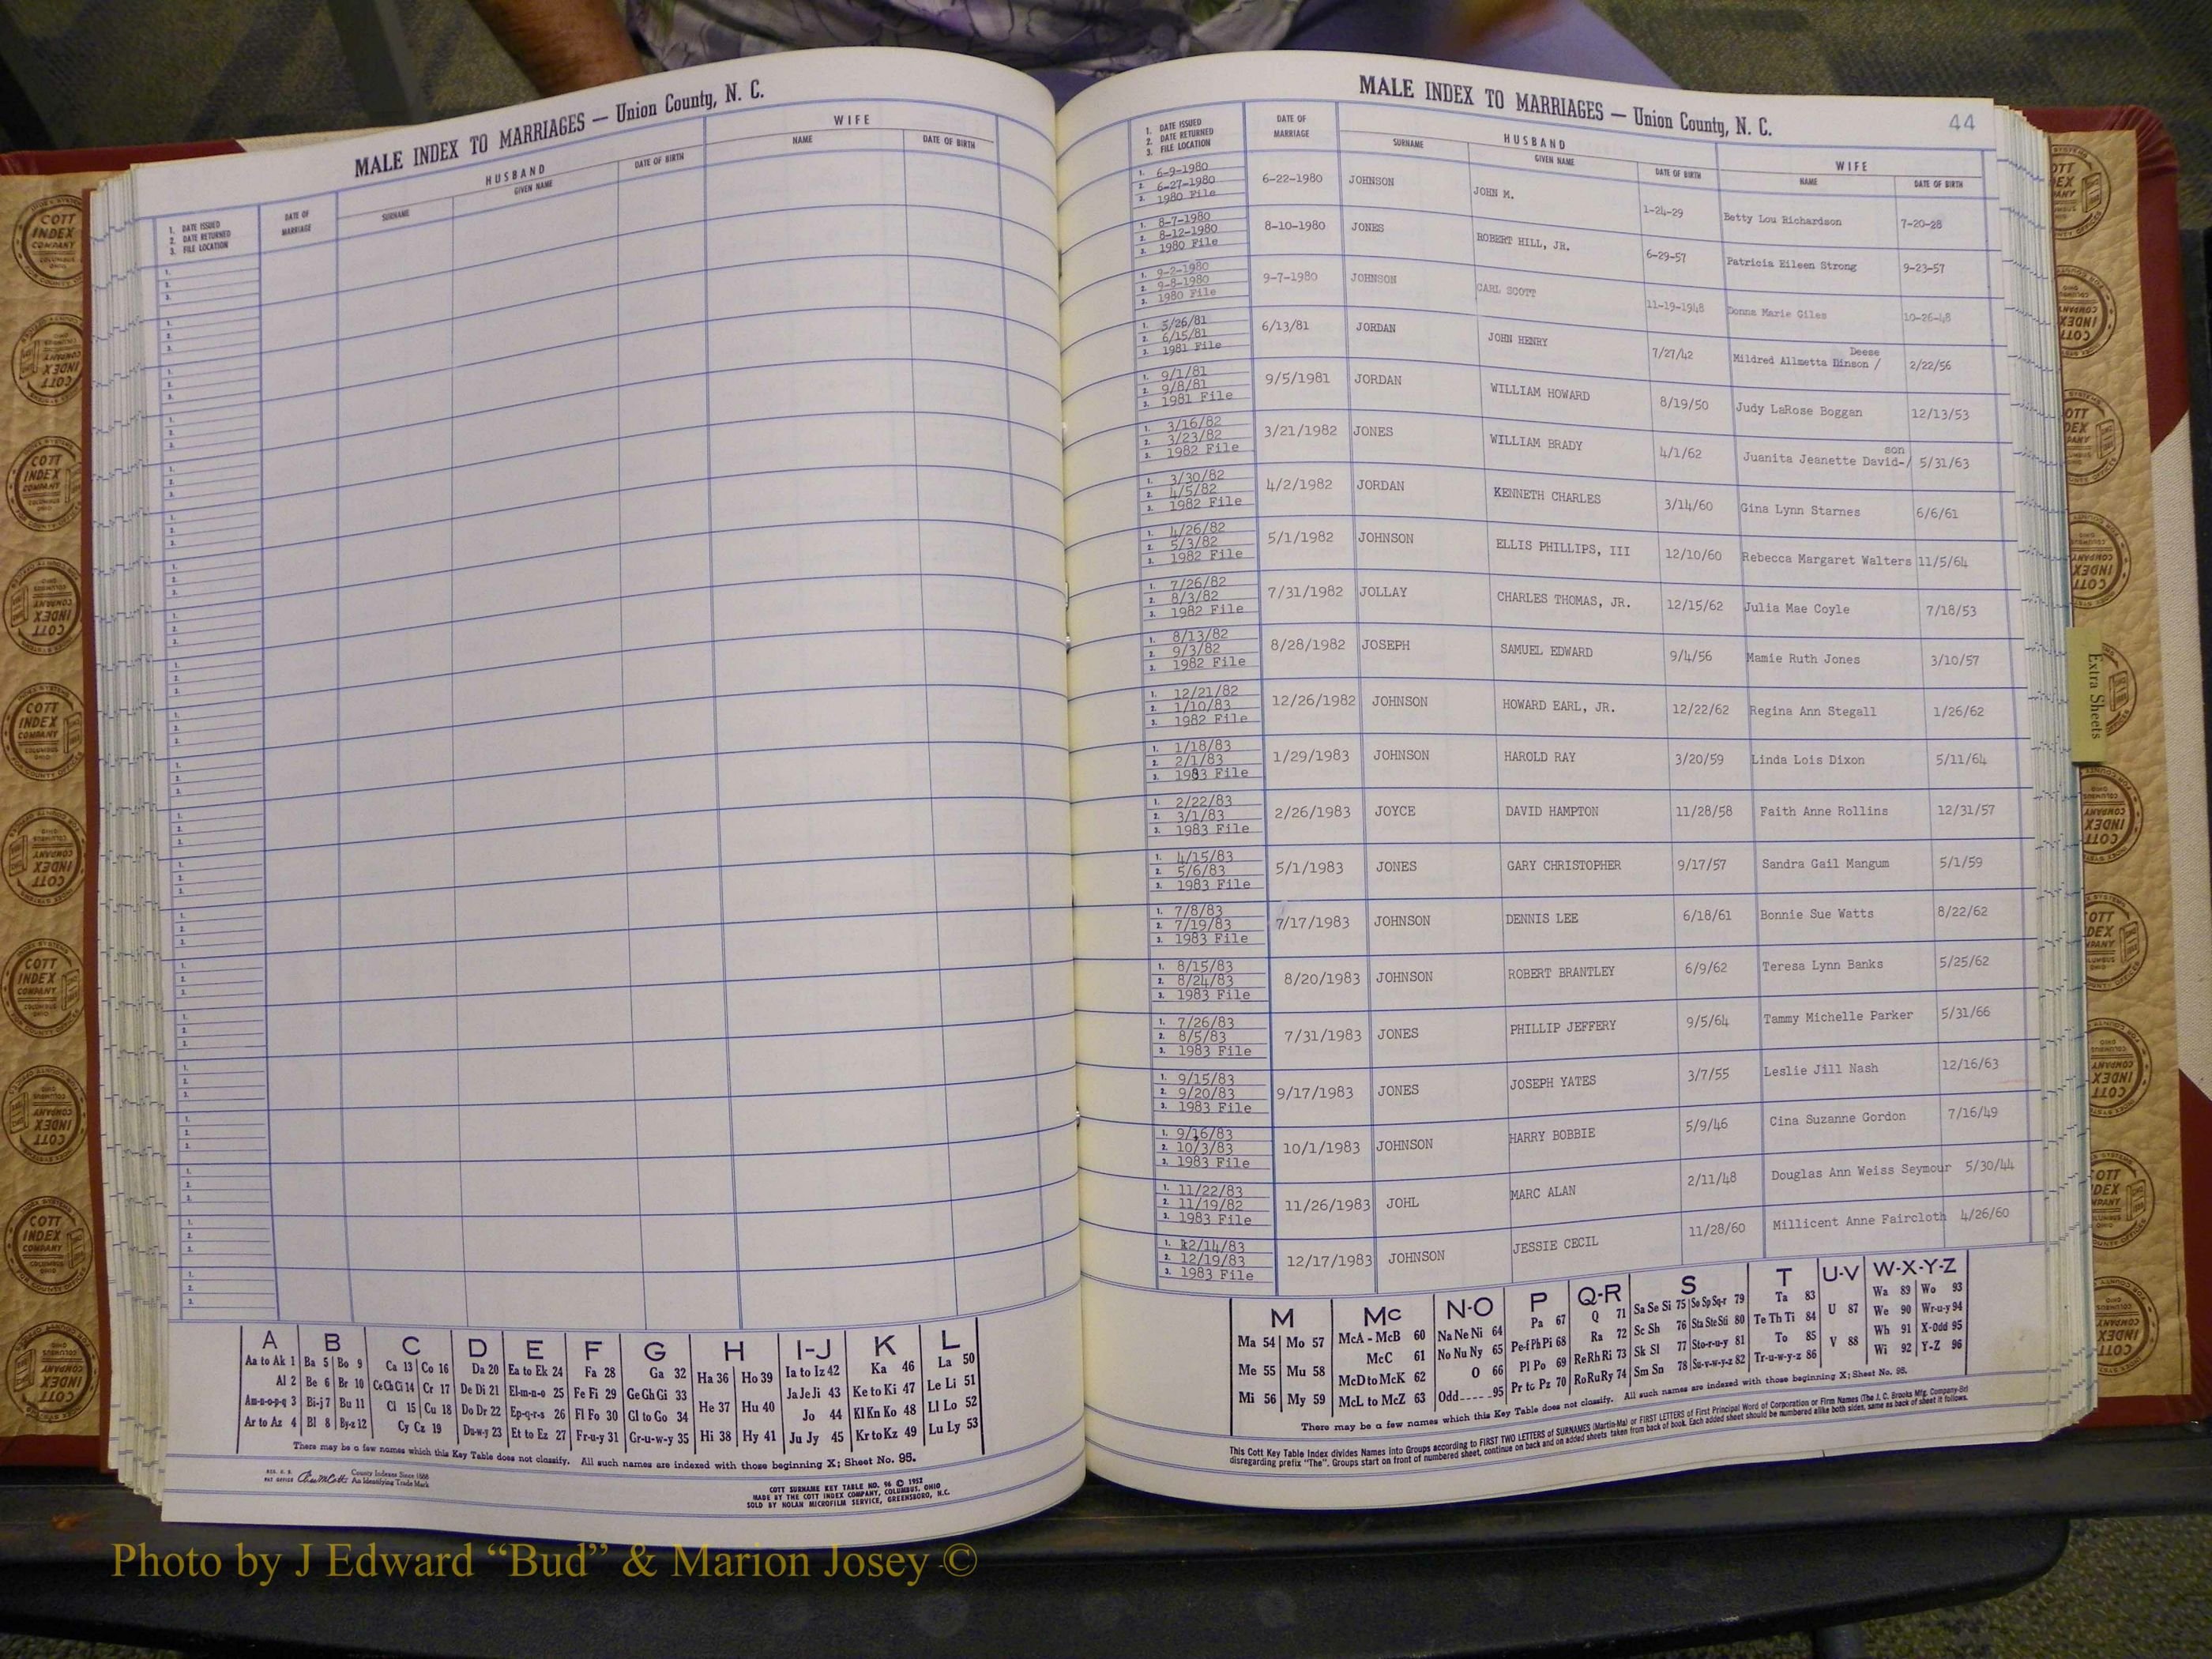 MALE INDEX TO MARRIAGES — Union County, N. C.
1. DATE ISSUED
2. DATE RETURNED
3. FILE LOCATION
DATE OF MARRIAGE
HUSBAND
SURNAME GIVEN NAME DATE OF BIRTH
WIFE
NAME DATE OF BIRTH
A B C D E F G H I-J K L
Aa to Ak 1 Ba 5 Bo 9 Ca 13 Co 16 Da 20 Ea to Ek 24 Fa 28 Ga 32 Ha 36 Ho 39 Ia to Iz 42 Ka 46 La 50
Al 2 Be 6 Br 10 Ce Ch Ci 14 Cr 17 De Di 21 El-m-n-o 25 Fe Fi 29 Ge Gh Gi 33 He 37 Hu 40 Ja Je Ji 43 Ke to Ki 47 Le Li 51
Am-n-o-p-q 3 Bi-j 7 Bu 11 Cl 15 Cu 18 Do Dr 22 Ep-q-r-s 26 Fl Fo 30 Gl to Go 34 Hi 38 Hy 41 Jo 44 Kl Kn Ko 48 Ll Lo 52
Ar to Az 4 Bl 8 By-z 12 Cy Cz 19 Du-w-y 23 Et to Ez 27 Fr-u-y 31 Gr-u-w-y 35 Ju Jy 45 Kr to Kz 49 Lu Ly 53
There may be a few names which this Key Table does not classify. All such names are indexed with those beginning X; Sheet No. 95.
County Indexes Since 1888
An Identifying Trade Mark
COTT SURNAME KEY TABLE NO. 96 © 1957
MADE BY THE COTT INDEX COMPANY, COLUMBUS, OHIO
SOLD BY NOLAN MICROFILM SERVICE, GREENSBORO, N.C.
MALE INDEX TO MARRIAGES — Union County, N. C. 44
1. DATE ISSUED
2. DATE RETURNED
3. FILE LOCATION
DATE OF MARRIAGE
HUSBAND
SURNAME GIVEN NAME DATE OF BIRTH
WIFE
NAME DATE OF BIRTH
1. 6-9-1980
2. 6-27-1980
3. 1980 File
6-22-1980 JOHNSON JOHN M. 1-24-29 Betty Lou Richardson 7-20-28
1. 8-7-1980
2. 8-12-1980
3. 1980 File
8-10-1980 JONES ROBERT HILL, JR. 6-29-57 Patricia Eileen Strong 9-23-57
1. 9-2-1980
2. 9-8-1980
3. 1980 File
9-7-1980 JOHNSON CARL SCOTT 11-19-1948 Donna Marie Giles 10-26-48
1. 5/26/81
2. 6/15/81
3. 1981 File
6/13/81 JORDAN JOHN HENRY 7/27/42 Mildred Allmetta Hinson / Deese 2/22/56
1. 9/1/81
2. 9/8/81
3. 1981 File
9/5/1981 JORDAN WILLIAM HOWARD 8/19/50 Judy LaRose Boggan 12/13/53
1. 3/16/82
2. 3/23/82
3. 1982 File
3/21/1982 JONES WILLIAM BRADY 4/1/62 Juanita Jeanette David-/ son 5/31/63
1. 3/30/82
2. 4/5/82
3. 1982 File
4/2/1982 JORDAN KENNETH CHARLES 3/14/60 Gina Lynn Starnes 6/6/61
1. 4/26/82
2. 5/3/82
3. 1982 File
5/1/1982 JOHNSON ELLIS PHILLIPS, III 12/10/60 Rebecca Margaret Walters 11/5/64
1. 7/26/82
2. 8/3/82
3. 1982 File
7/31/1982 JOLLAY CHARLES THOMAS, JR. 12/15/62 Julia Mae Coyle 7/18/53
1. 8/13/82
2. 9/3/82
3. 1982 File
8/28/1982 JOSEPH SAMUEL EDWARD 9/4/56 Mamie Ruth Jones 3/10/57
1. 12/21/82
2. 1/10/83
3. 1982 File
12/26/1982 JOHNSON HOWARD EARL, JR. 12/22/62 Regina Ann Stegall 1/26/62
1. 1/18/83
2. 2/1/83
3. 1983 File
1/29/1983 JOHNSON HAROLD RAY 3/20/59 Linda Lois Dixon 5/11/64
1. 2/22/83
2. 3/1/83
3. 1983 File
2/26/1983 JOYCE DAVID HAMPTON 11/28/58 Faith Anne Rollins 12/31/57
1. 4/15/83
2. 5/6/83
3. 1983 File
5/1/1983 JONES GARY CHRISTOPHER 9/17/57 Sandra Gail Mangum 5/1/59
1. 7/8/83
2. 7/19/83
3. 1983 File
7/17/1983 JOHNSON DENNIS LEE 6/18/61 Bonnie Sue Watts 8/22/62
1. 8/15/83
2. 8/24/83
3. 1983 File
8/20/1983 JOHNSON ROBERT BRANTLEY 6/9/62 Teresa Lynn Banks 5/25/62
1. 7/26/83
2. 8/5/83
3. 1983 File
7/31/1983 JONES PHILLIP JEFFERY 9/5/64 Tammy Michelle Parker 5/31/66
1. 9/15/83
2. 9/20/83
3. 1983 File
9/17/1983 JONES JOSEPH YATES 3/7/55 Leslie Jill Nash 12/16/63
1. 9/16/83
2. 10/3/83
3. 1983 File
10/1/1983 JOHNSON HARRY BOBBIE 5/9/46 Cina Suzanne Gordon 7/16/49
1. 11/22/83
2. 11/19/82
3. 1983 File
11/26/1983 JOHL MARC ALAN 2/11/48 Douglas Ann Weiss Seymour 5/30/44
1. 12/14/83
2. 12/19/83
3. 1983 File
12/17/1983 JOHNSON JESSIE CECIL 11/28/60 Millicent Anne Faircloth 4/26/60
M Mc N-O P Q-R S T U-V W-X-Y-Z
Ma 54 Mo 57 McA - McB 60 Na Ne Ni 64 Pa 67 Q 71 Sa Se Si 75 So Sp Sq-r 79 Ta 83 U 87 Wa 89 Wo 93
Me 55 Mu 58 McC 61 No Nu Ny 65 Pe-f Ph Pi 68 Ra 72 Sc Sh 76 Sta Ste Sti 80 Te Th Ti 84 V 88 We 90 Wr-u-y 94
Mi 56 My 59 McD to McK 62 O 66 Pl Po 69 Re Rh Ri 73 Sk Sl 77 Sto-r-u-y 81 To 85 Wh 91 X-Odd 95
McL to McZ 63 Odd-----95 Pr to Pz 70 Ro Ru Ry 74 Sm Sn 78 Su-v-w-y-z 82 Tr-u-w-y-z 86 Wi 92 Y-Z 96
There may be a few names which this Key Table does not classify. All such names are indexed with those beginning X; Sheet No. 95.
This Cott Key Table Index divides Names into Groups according to FIRST TWO LETTERS of SURNAMES (Martin-Ma) or FIRST LETTERS of First Principal Word of Corporation or Firm Names (The J. C. Brooks Mfg. Company-Br)
disregarding prefix "The". Groups start on front of numbered sheet, continue on back and on added sheets taken from back of book. Each added sheet should be numbered alike both sides, same as back of sheet it follows.
Extra Sheets
COTT INDEX COMPANY
Photo by J Edward “Bud” & Marion Josey ©